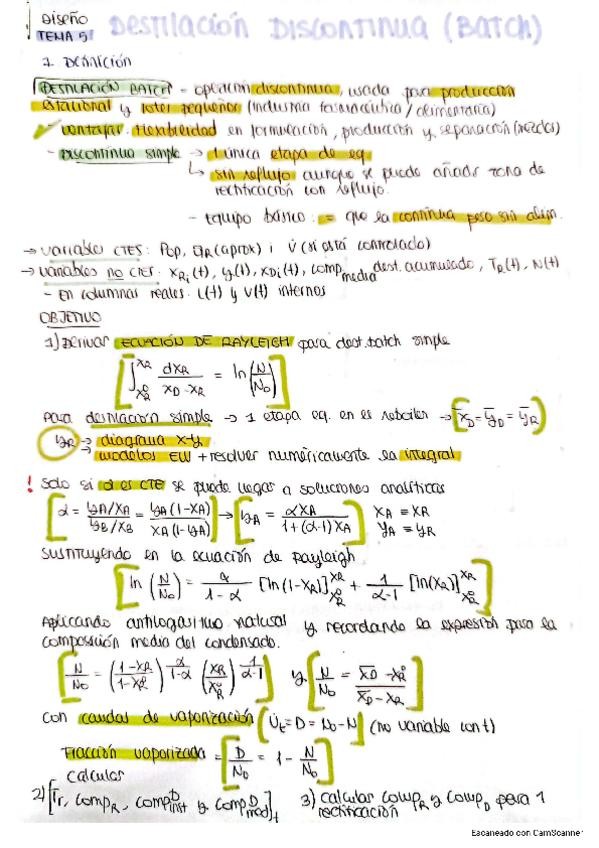 DISEÑO
TEMA 5
DESTILACIÓN DISCONTINUA (BATCH)
1. Definición
DESTILACIÓN BATCH - operación discontinua, usada para producción
estacional y lotes pequeños (industria farmacéutica / alimentaria)
- ventajas: flexibilidad en formulación, producción y separación (mezclas)
- Discontinua simple → 1 única etapa de eq.
↳ sin reflujo aunque se puede añadir zona de
rectificación con reflujo.
- Equipo básico: = que la continua pero sin alim.
→ variables CTES: Pop, (aprox) i V̇ (si está controlado)
→ variables no CTES: xRi(t), yi(t), xDi(t), comp media dest. acumulado, TR(t), N(t)
- En columnas reales: L(t) y V(t) internos
OBJETIVO
1) Derivar ECUACIÓN DE RAYLEIGH para dest. batch simple
[∫ xR⁰ xR dxR / (xD - xR) = ln(N/N₀)]
para destilación simple → 1 etapa eq. en es reboiler → (x̄D = ȳD = ȳR)
yR → diagrama x-y
→ modelos ELV + resolver numéricamente la integral
! Solo si α es CTE se puede llegar a soluciones analíticas
[α = (yA/xA)/(yB/xB) = yA(1-xA)/(xA(1-yA))] → [yA = αxA/(1+(α-1)xA)] xA = xR
yA = yR
Sustituyendo en la ecuación de Rayleigh
[ln(N/N₀) = α/(1-α) [ln(1-xR)] xR⁰ xR + 1/(α-1) [ln(xR)] xR⁰ xR]
Aplicando antilogaritmo natural y recordando la expresión para la
composición media del condensado.
[N/N₀ = ((1-xR)/(1-xR⁰))^(α/(1-α)) (xR/xR⁰)^(1/(α-1))] y [N/N₀ = (x̄D - xR⁰)/(x̄D - xR)]
con caudas de vaporización [V̇t = D = N₀-N] (no variable con t)
Fracción vaporizada = [D/N₀ = 1 - N/N₀]
Calcular
2) [Tr, compR, compD inst y compD med]t 3) calcular compR y compD para 1
rectificación
Escaneado con CamScanner